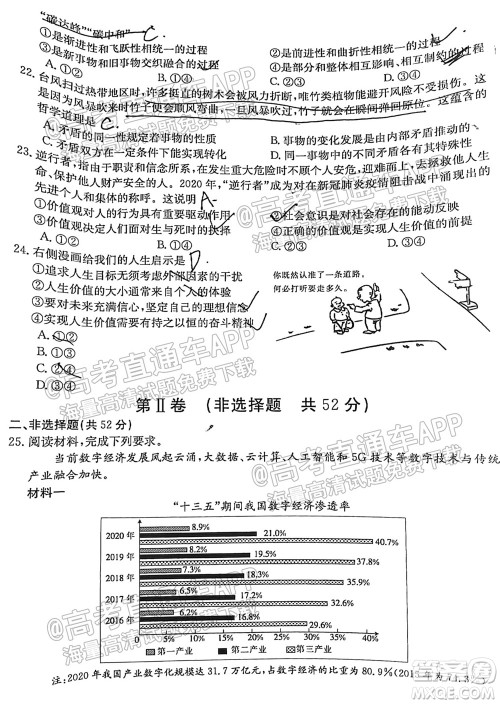 “碳达峰”“碳中和” C.
①是渐进性和飞跃性相统一的过程 ②是前进性和曲折性相统一的过程
③是新事物和旧事物交织融合的过程 ④是部分和整体相互影响、相互制约的过程
A. ①② B. ①③ C. ②④ D. ③④
22. 台风扫过热带地区时,许多挺直的树木会被风力折断,唯竹类植物能避开风险不受损伤。这
是因为风暴吹来时竹子便会顺风弯曲,一旦风暴吹过,竹子就会在瞬间弹回原位。这蕴含的
哲学道理是 C.
A. 矛盾的同一性规定着事物的性质 B. 事物的变化发展是由内部矛盾推动的
C. 矛盾双方在一定条件下能实现转化 D. 同一事物在不同阶段有不同矛盾
23. 逆行者,是指由于职责和信念所系,在发生重大危险时不顾个人安危,迎难而上,去拯救他人生
命、保护他人财产安全的人。2020 年,“逆行者”们成为在新冠肺炎疫情阻击战中涌现出的先
进个人和集体的称呼。这说明 A
①价值观对人的行为具有重要驱动作用 ②社会意识是对社会存在的能动反映
③价值观决定人们走与死亡的人生道路 ④正确的价值观为实现人生价值提供保障
A. ①② B. ①③ C. ②④ D. ③④
24. 右侧漫画给我们的人生启示是 D.
①追求人生目标无须考虑外部因素的干扰
②人生价值的大小通常来自个人的体验
③要对未来充满信心,坚定自己的理想信念
④实现人生价值需要持之以恒的奋斗精神
A. ①②
B. ①③
C. ②④
D. ③④
你既然认准了一条道路,
何必打听要走多久。
第Ⅱ卷 (非选择题 共 52 分)
二、非选择题(共 52 分)
25. 阅读材料,完成下列要求。
当前数字经济发展风起云涌,大数据、云计算、人工智能和 5G 技术等数字技术与传统
产业融合加快。
材料一
“十三五”期间我国数字经济渗透率
2020 年 8.9% 21.0% 40.7%
2019 年 8.2% 19.5% 37.8%
2018 年 7.3% 18.3% 35.9%
2017 年 6.5% 17.2% 32.6%
2016 年 6.2% 16.8% 29.6%
0% 5% 10% 15% 20% 25% 30% 35% 40%
第一产业 第二产业 第三产业
注:2020 年我国产业数字化规模达 31.7 万亿元,占数字经济的比重为 80.9%
高考直通车APP
海量高清试题免费下载